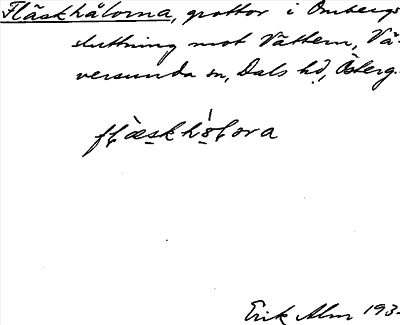 Fläskhålorna, grottor i Ombergs
sluttning mot Vättern, Vä-
versunda sn, Dals hd, Österg.
flæskhålora
Erik Alm 193-